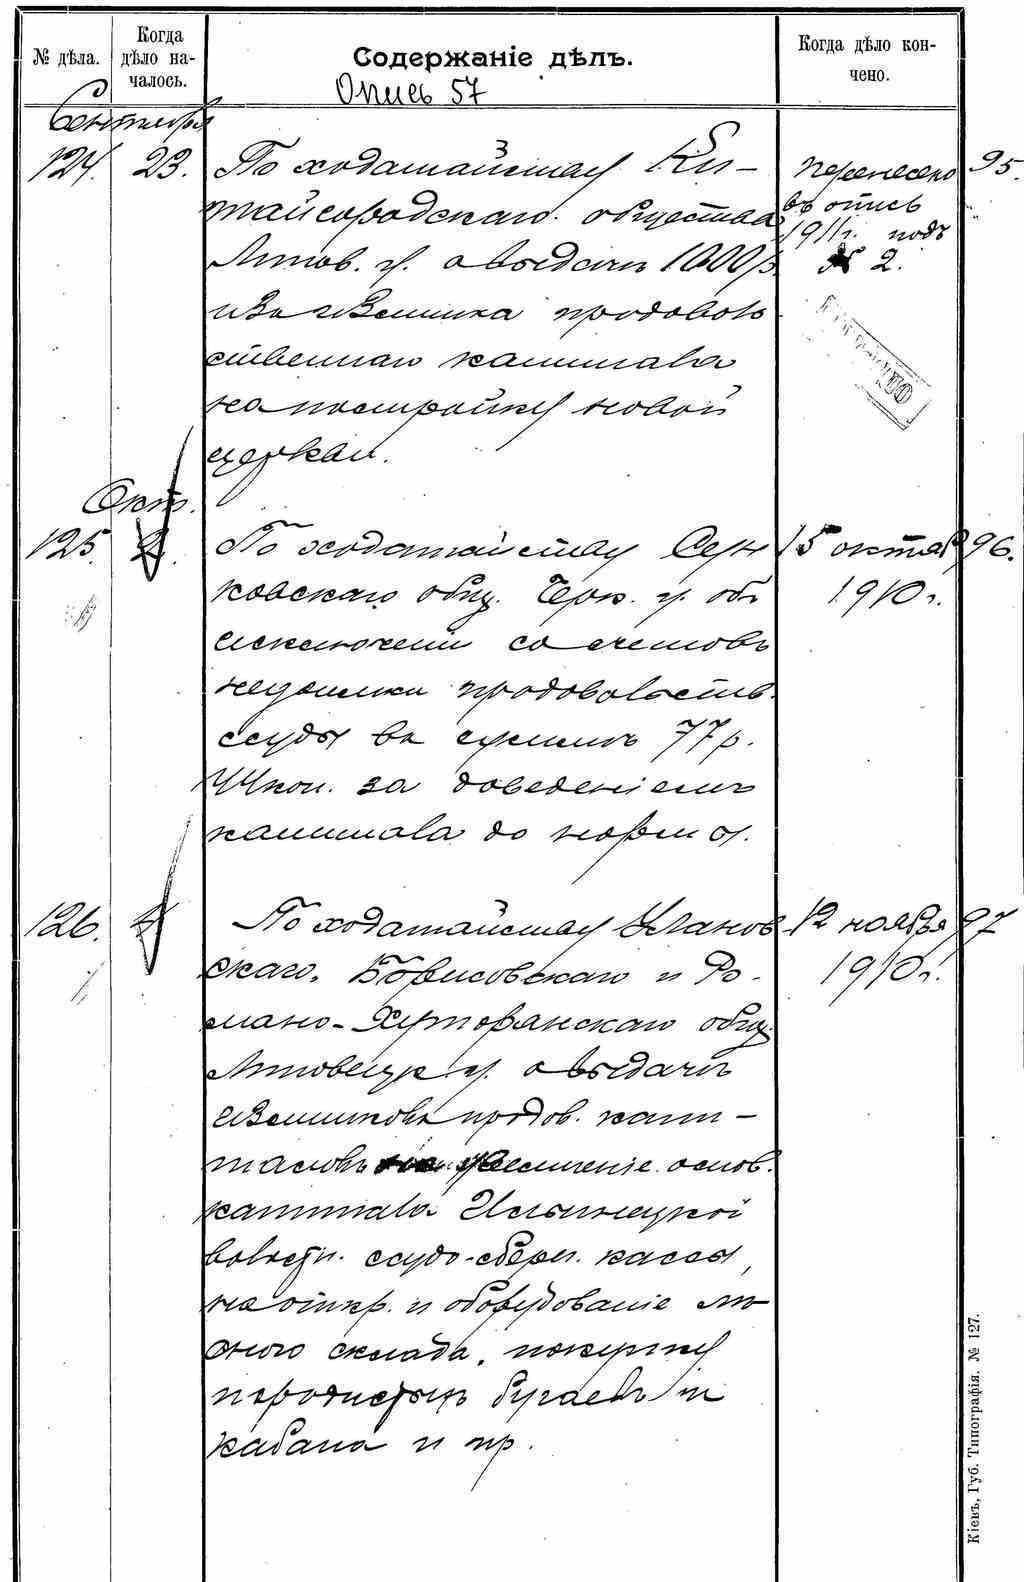 № дѣла.
Когда
дѣло на-
чалось.
Содержаніе дѣлъ.
Когда дѣло кон-
чено.
Опись 57
Сентября
124. 23. По ходатайству Ки-
тайгородскаго общества
Липов. у. о выдачѣ 1000 р.
изъ излишка продоволь
ственнаго капитала
на постройку новой
церкви.
перенесено
въ опись
1911 г. подъ
№ 2.
95.
Окт.
125. 2. По ходатайству
ковскаго общ. Черк. у. объ
исключеніи со счетовъ
недоимки продовольств.
ссуды въ суммѣ 77 р.
44 коп. за доведеніемъ
капитала до нормы.
15 октября
1910 г.
96.
126. По ходатайству Уланов
скаго, Борисовскаго и Ро-
мано-Хуторянскаго общ.
Липовецк. у. о выдачѣ
излишковъ продов. капи-
таловъ на увеличеніе основ.
капитала Ильинецкой
волостн. ссудо-сберег. кассы,
на откр. и оборудованіе
склада, покупку
породистыхъ бугаевъ и
кабана и пр.
12 ноября
1910 г.
97
Кіевъ, Губ. Типографія. № 127.